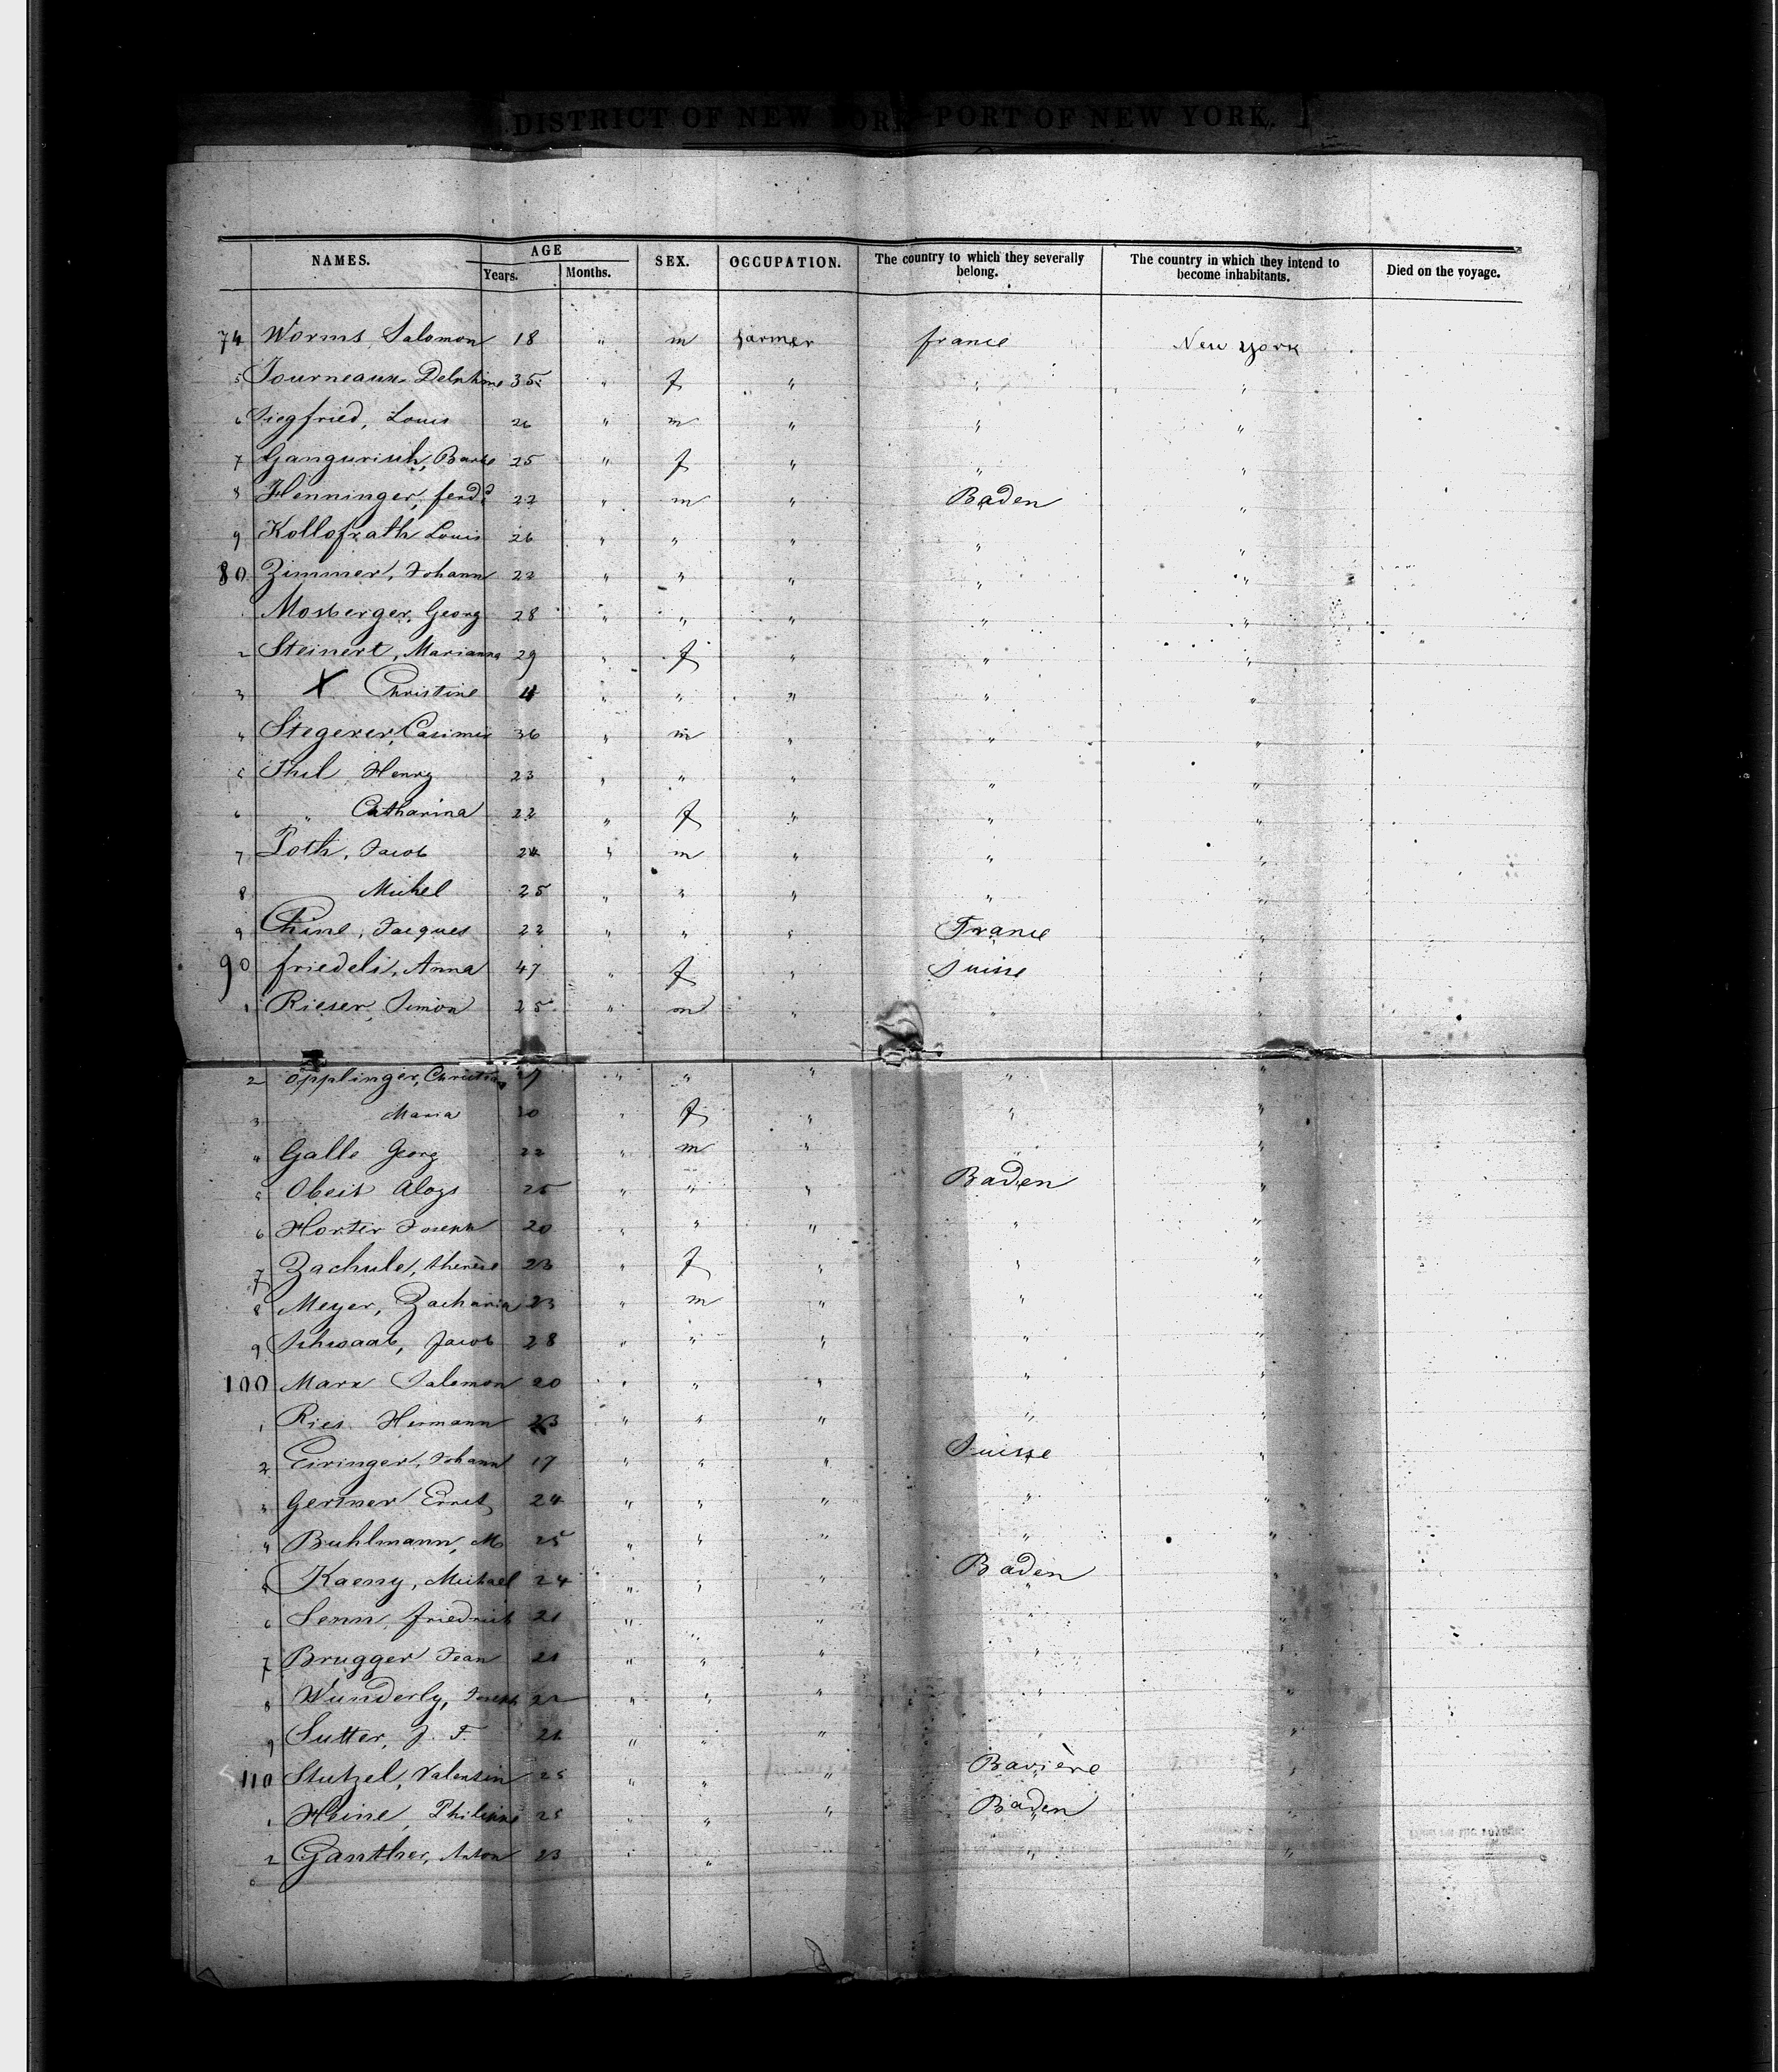 DISTRICT OF NEW YORK - PORT OF NEW YORK.
NAMES. AGE Years. Months. SEX. OCCUPATION. The country to which they severally belong. The country in which they intend to become inhabitants. Died on the voyage.
74 Worms, Salomon 18 " m farmer france New York
5 Journeaux Delphine 35 " f " " "
6 Siegfried, Louis 26 " m " " "
7 25 " f " " "
8 Henninger, ferd^d 22 " m " Baden "
9 Kollofrath Louis 26 " " " " "
80 Zimmer, Johann 22 " " " " "
Mosberger, Georg 28 " " " " "
2 Steinert, Marianna 29 " f " " "
3 X Christine 4 " " " " "
4 Stegerer, Casimir 36 " m " " "
5 Thil Henry 23 " " " " "
6 " Catharina 22 " f " " "
7 Poth, Jacob 24 " m " " "
8 Michel 25 " " " " "
9 Chine, Jacques 22 " " " France "
90 friedeli, Anna 47 " f " Suisse "
1 Rieser, Simon 25 " m " " "
2 Opplinger, Christian " " " " "
3 Maria " f " " "
4 Galle Georg 22 " m " " "
5 Obeit Aloys 25 " " " Baden "
6 Horter Joseph 20 " " " " "
7 Zachule, therèse 23 " f " " "
8 Meyer, Zacharia 23 " m " " "
9 Schwaab, Jacob 28 " " " " "
100 Marx Salomon 20 " " " " "
1 Ries Hermann 23 " " " " "
2 Eiringer, Johann 17 " " " Suisse "
3 Gertner Ernst 24 " " " " "
4 Buhlmann, M 25 " " " " "
5 Kaeny, Michael 24 " " " Baden "
6 Senn, friedrich 21 " " " " "
7 Brugger Jean 21 " " " " "
8 Wunderly, Joseph 22 " " " " "
9 Sutter, J. F. 26 " " " " "
110 Stutzel, Valentin 25 " " " Bavière "
1 Heine, Philippe 25 " " " Baden "
2 Ganther, Anton 23 " " " "